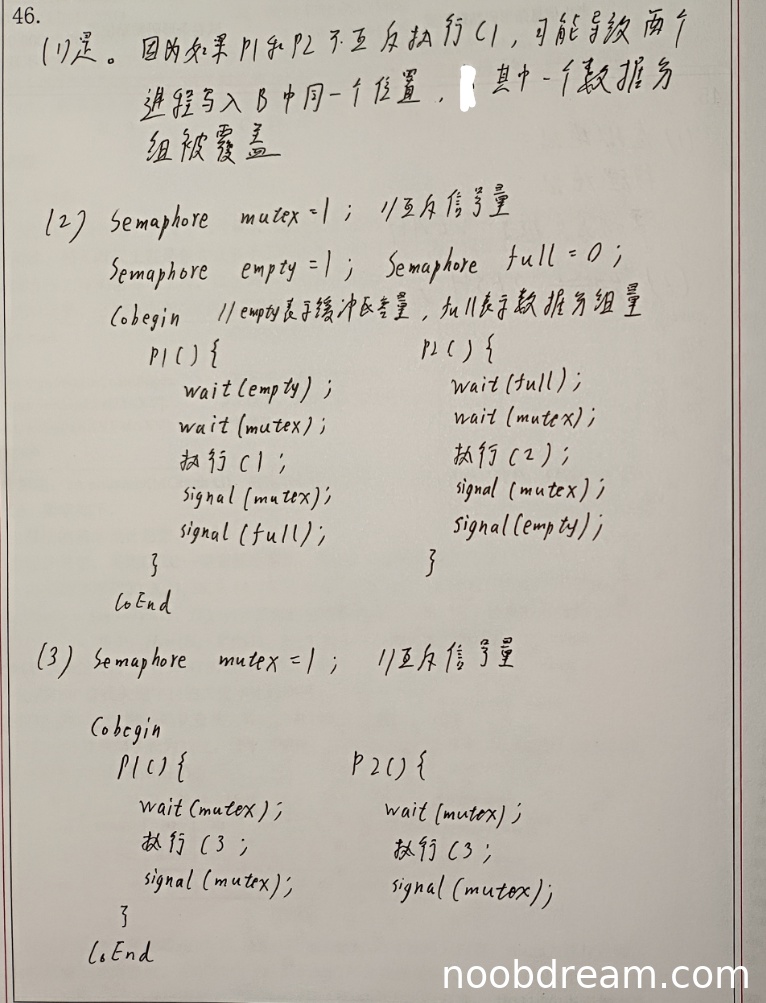 46.
(1)是。因为如果P1和P2不互斥执行C1,可能导致两个
进程写入B中同一个位置,其中一个数据分
组被覆盖
(2) Semaphore mutex=1; //互斥信号量
Semaphore empty=1; Semaphore full=0;
Cobegin //empty表示缓冲区容量,full表示数据分组量
P1(){ P2(){
wait(empty); wait(full);
wait(mutex); wait(mutex);
执行C1; 执行C2);
signal(mutex); signal(mutex);
signal(full); signal(empty);
} }
CoEnd
(3) Semaphore mutex=1; //互斥信号量
Cobegin
P1(){ P2(){
wait(mutex); wait(mutex);
执行C3; 执行C3;
signal(mutex); signal(mutex);
}
CoEnd
noobdream.com